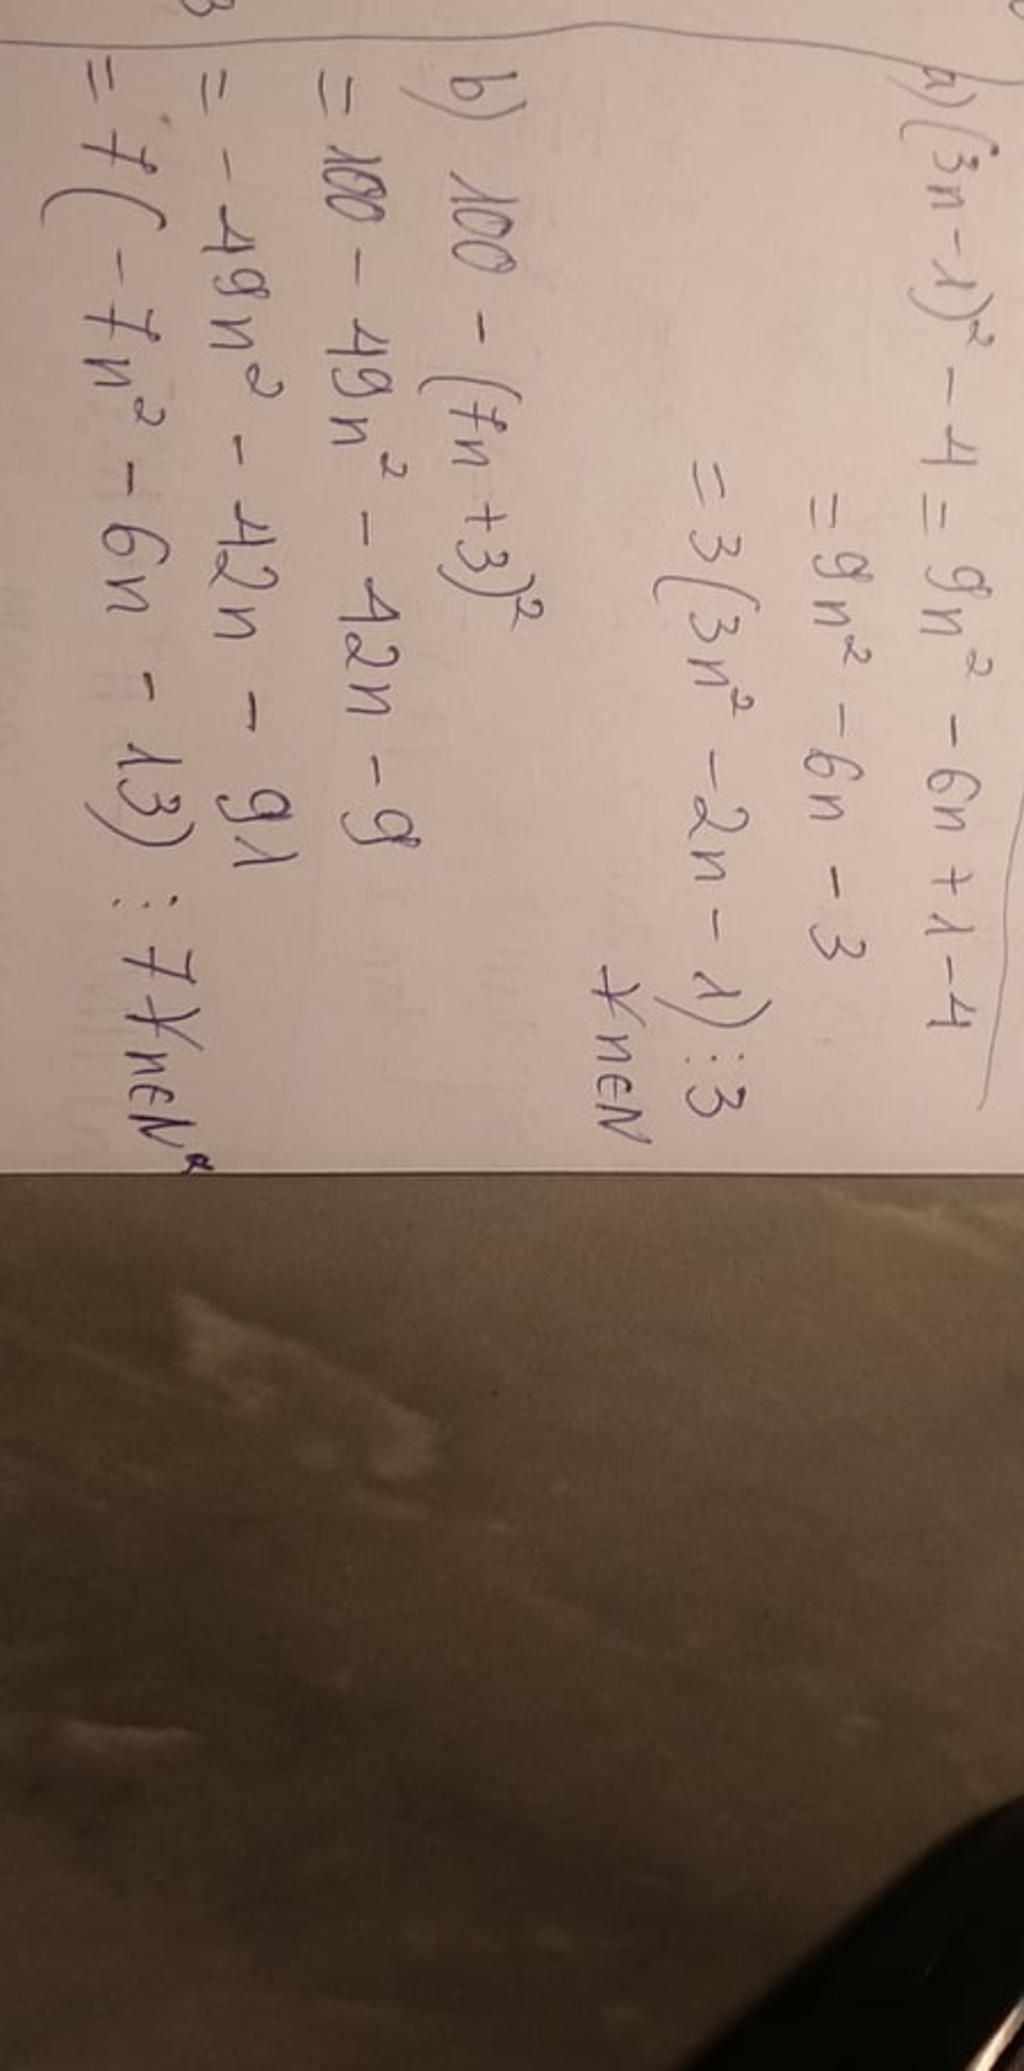 a) (3n-1)² - 4 = 9n² - 6n + 1 - 4
= 9n² - 6n - 3
= 3(3n² - 2n - 1) ⋮ 3
∀n∈N
b) 100 - (7n+3)²
= 100 - 49n² - 42n - 9
= - 49n² - 42n - 91
= 7(-7n² - 6n - 13) ⋮ 7 ∀n∈N*